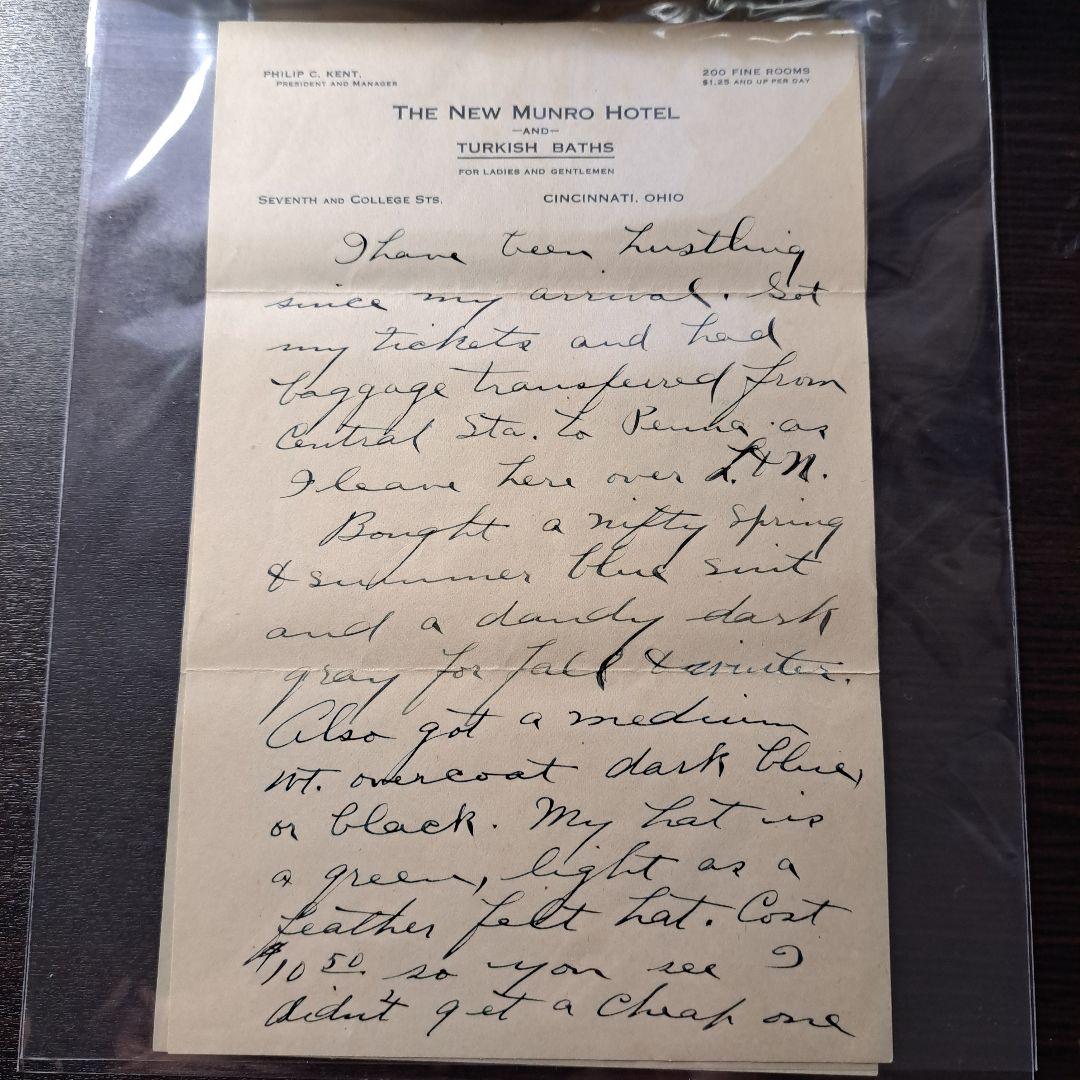 PHILIP C. KENT,
PRESIDENT AND MANAGER
200 FINE ROOMS
$1.25 AND UP PER DAY
THE NEW MUNRO HOTEL
—AND—
TURKISH BATHS
FOR LADIES AND GENTLEMEN
SEVENTH AND COLLEGE STS.
CINCINNATI, OHIO
I have been hustling
since my arrival. Got
my tickets and had
baggage transferred from
Central Sta. to Penna. as
I leave here over L. & N.
Bought a nifty Spring
& summer blue suit
and a dandy dark
gray for fall & winter.
Also got a medium
wt. overcoat dark blue,
or black. My hat is
a green, light as a
feather felt hat. Cost
$10 50. so you see I
didn't get a cheap one